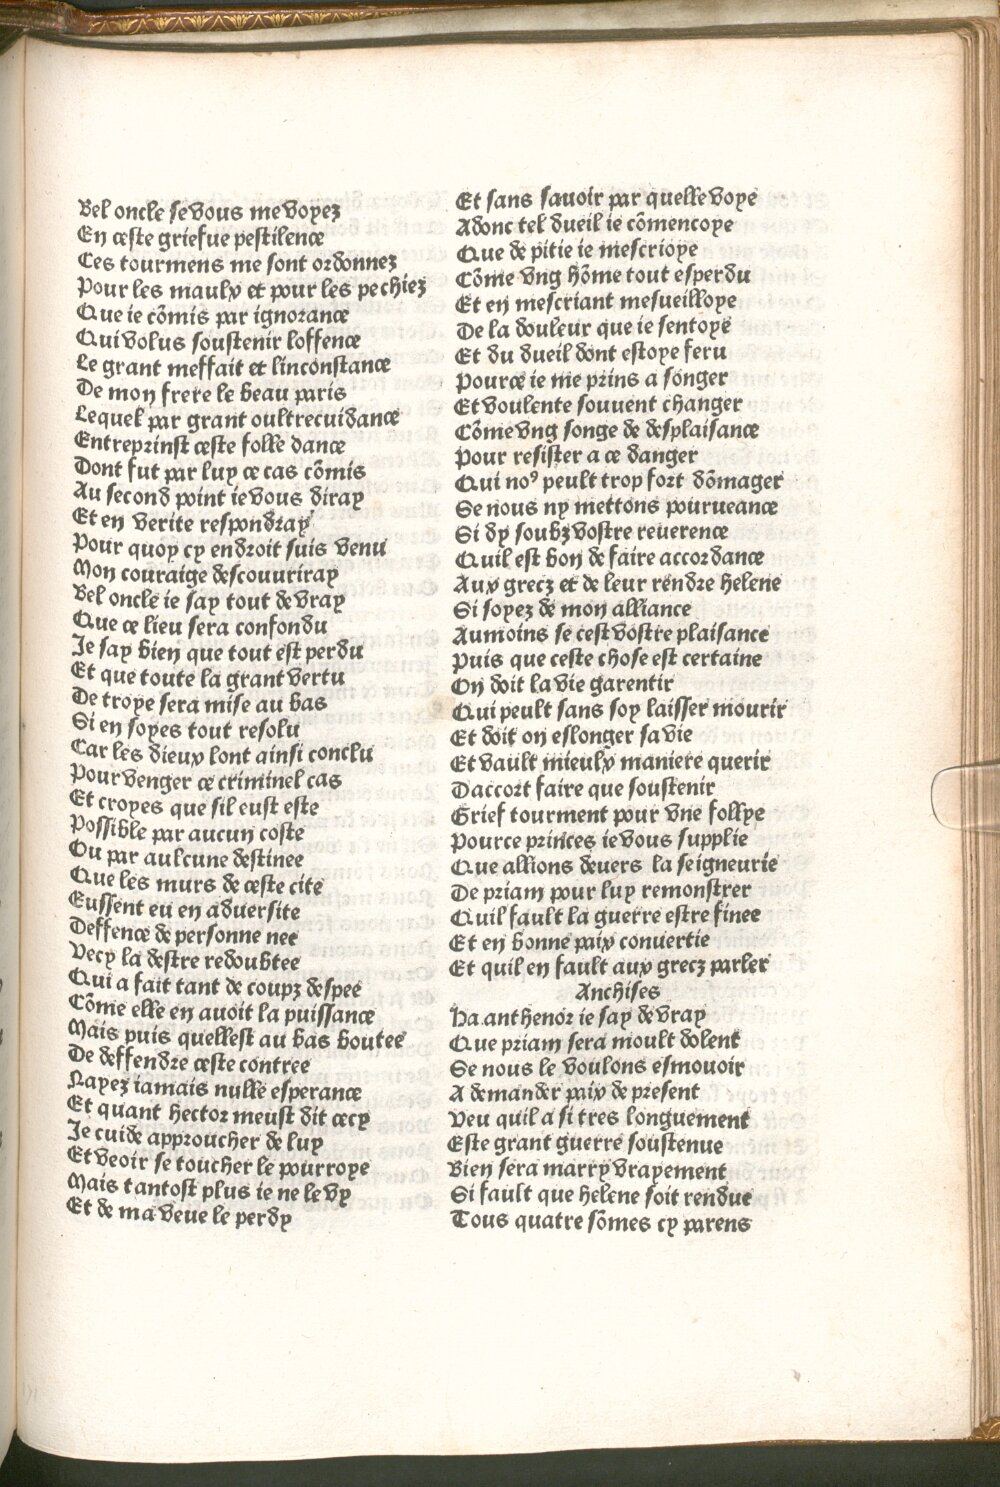 Bel oncle se vous me voyez
En ceste griefue pestilence
Ces tourmens me sont ordonnez
Pour les maulx et pour les pechiez
Que ie cõmis par ignorance
Qui volus soustenir loffence
Le grant meffait et linconstance
De mon frere le beau paris
Lequel par grant oultrecuidance
Entreprinst ceste folle dance
Dont fut par luy ce cas cõmis
Au second point ie vous diray
Et en verite respondray
Pour quoy cy endroit suis venu
Mon couraige descouuriray
Bel oncle ie say tout de vray
Que ce lieu sera confondu
Je say bien que tout est perdu
Et que toute la grant vertu
De troye sera mise au bas
Si en soyes tout resolu
Car les dieux lont ainsi conclu
Pour venger ce criminel cas
Et croyes que sil eust este
Possible par aucun coste
Ou par aulcune destinee
Que les murs de ceste cite
Eussent eu en aduersite
Deffence de personne nee
Vecy la destre redoubtee
Qui a fait tant de coupz despee
Cõme elle en auoit la puissance
Mais puis quellest au bas boutee
De deffendre ceste contree
Nayez iamais nulle esperance
Et quant hector meust dit cecy
Je cuide approucher de luy
Et veoir se toucher le pourroye
Mais tantost plus ie ne le vy
Et de ma veue le perdy
Et sans sauoir par quelle voye
Adonc tel dueil ie cõmencoye
Que de pitie ie mescrioye
Cõme vng hõme tout esperdu
Et en mescriant mesueilloye
De la douleur que ie sentoye
Et du dueil dont estoye feru
Pource ie me prins a songer
Et voulente souuent changer
Cõme vng songe de desplaisance
Pour resister a ce danger
Qui noꝰ peult trop fort dõmager
Se nous ny mettons pourueance
Si dy soubz vostre reuerence
Quil est bon de faire accordance
Aux grecz et de leur rendre helene
Si soyez de mon alliance
Aumoins se cest vostre plaisance
Puis que ceste chose est certaine
On doit la vie garentir
Qui peult sans soy laisser mourir
Et doit on eslonger sa vie
Et vault mieulx maniere querir
Daccort faire que soustenir
Grief tourment pour vne follye
Pource princes ie vous supplie
Que allions deuers la seigneurie
De priam pour luy remonstrer
Quil fault la guerre estre finee
Et en bonne paix conuertie
Et quil en fault aux grecz parler
Anchises
Ha anthenor ie say de vray
Que priam sera moult dolent
Se nous le voulons esmouoir
A demander paix de present
Veu quil a si tres longuement
Este grant guerre soustenue
Bien sera marry vrayement
Si fault que helene soit rendue
Tous quatre sõmes cy parens